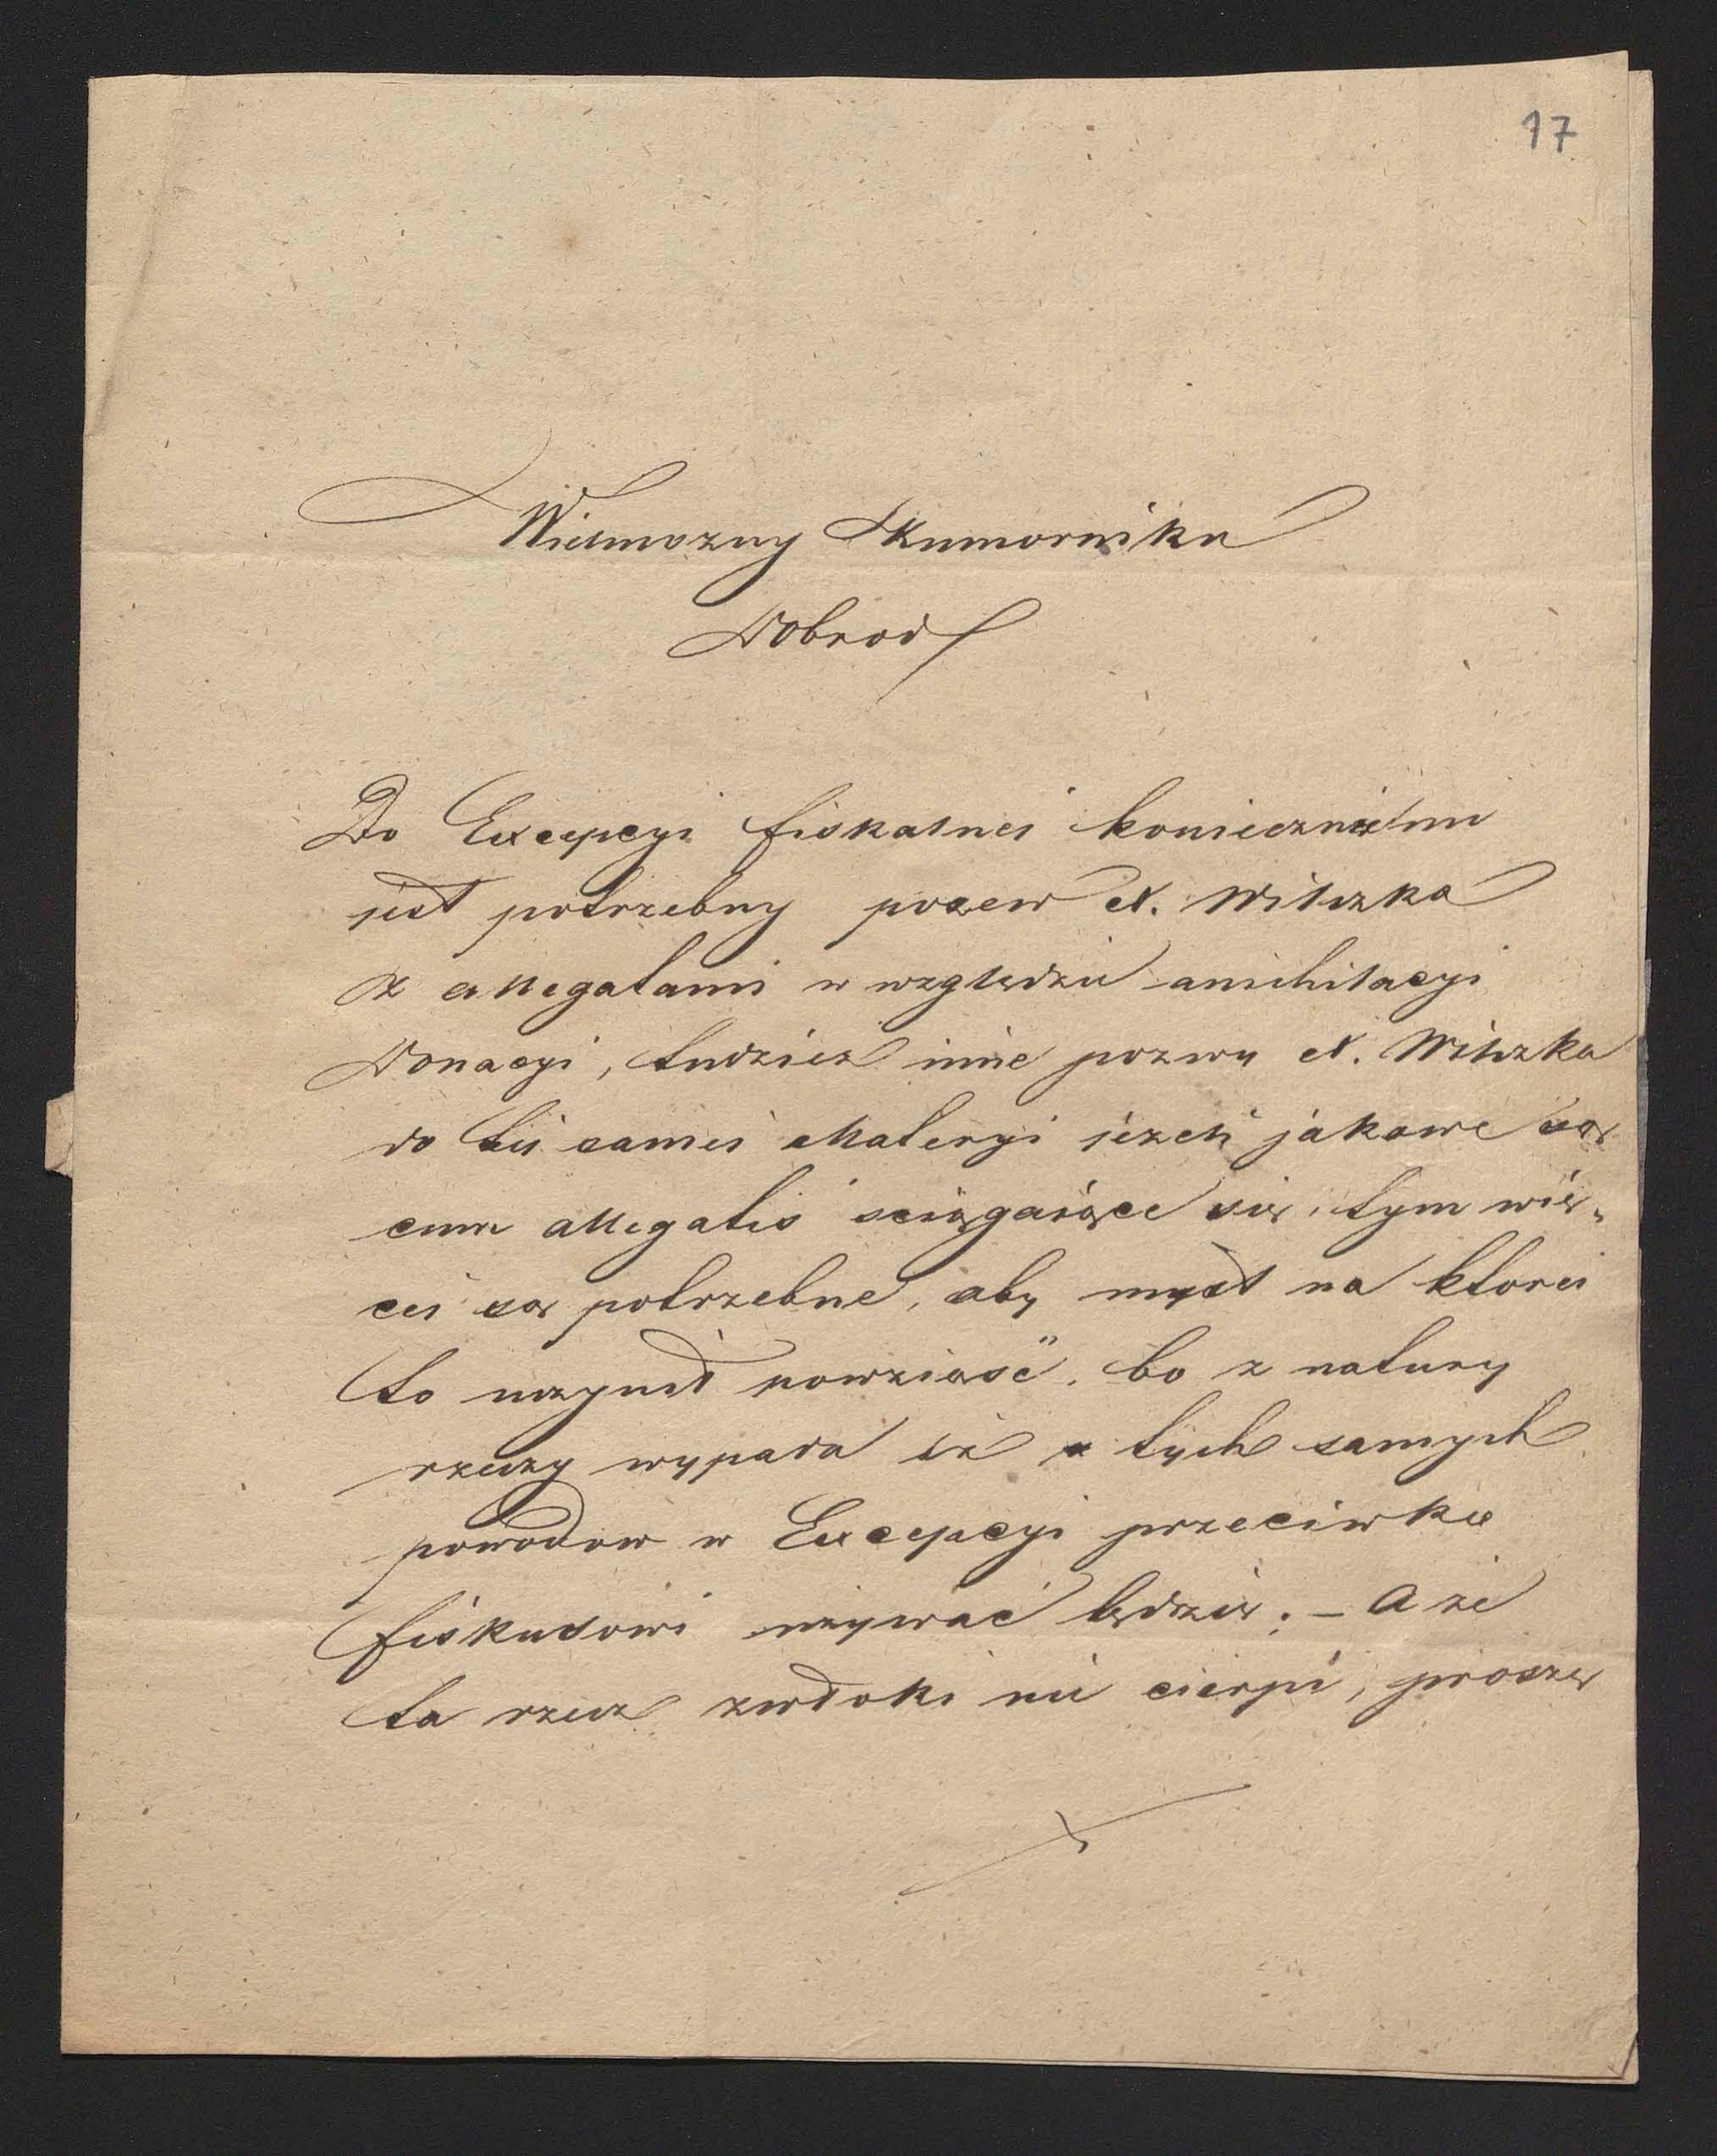 17
Wielmozny Komornika
Dobrod
Do Excepcyi fiskalnei koniecznie mi
jest potrzebny pozew X. Wilczka
z Allegatami w względzie anihilacyi
Donacyi, tudziez inne pozwy X. Wilczka
do tei samei Materyi jezeli jakowe są
cum allegatis sciągaiące się, tym wię„
cei są potrzebne, aby mysl na ktorei
to uczynił powziąsć. bo z natury
rzeczy wypada iż z tych samych
powodow w Excepcyi przeciwko
fiskusowi używać będzie; – A że
ta rzecz zwłoki nie cierpi, proszę